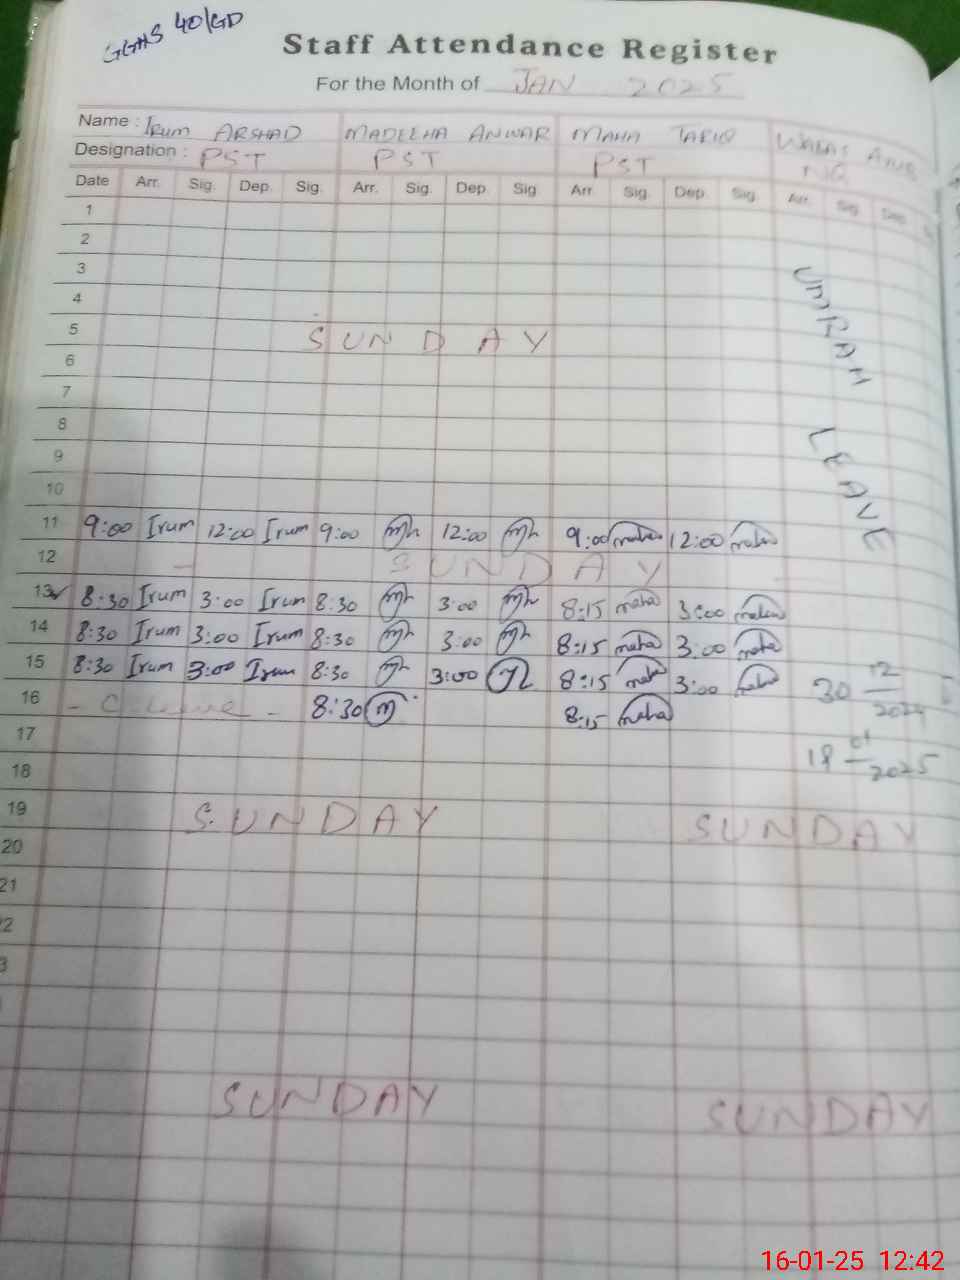 GGHS 40/GD
Staff Attendance Register
For the Month of JAN 2025
Name : IRUM ARSHAD MADEEHA ANWAR MAHA TARIQ
Designation : PST PST PST NQ
Date Arr. Sig. Dep. Sig. Arr. Sig. Dep. Sig Arr. Sig. Dep. Sig. Arr. Sig. Dep.
1
2
3
4
5 SUNDAY
6
7
8
9
10
UMRAH LEAVE
11 9:00 Irum 12:00 Irum 9:00 12:00 9:00 maha 12:00 maha
12 SUNDAY
13 8:30 Irum 3:00 Irum 8:30 3:00 8:15 maha 3:00 maha
14 8:30 Irum 3:00 Irum 8:30 3:00 8:15 maha 3:00 maha
15 8:30 Irum 3:00 Irum 8:30 3:00 8:15 maha 3:00 maha
30 12/2024
16 - C Leave - 8:30 m 8:15 maha
17
18 01/2025
18
19 SUNDAY SUNDAY
20
21
SUNDAY SUNDAY
16-01-25 12:42